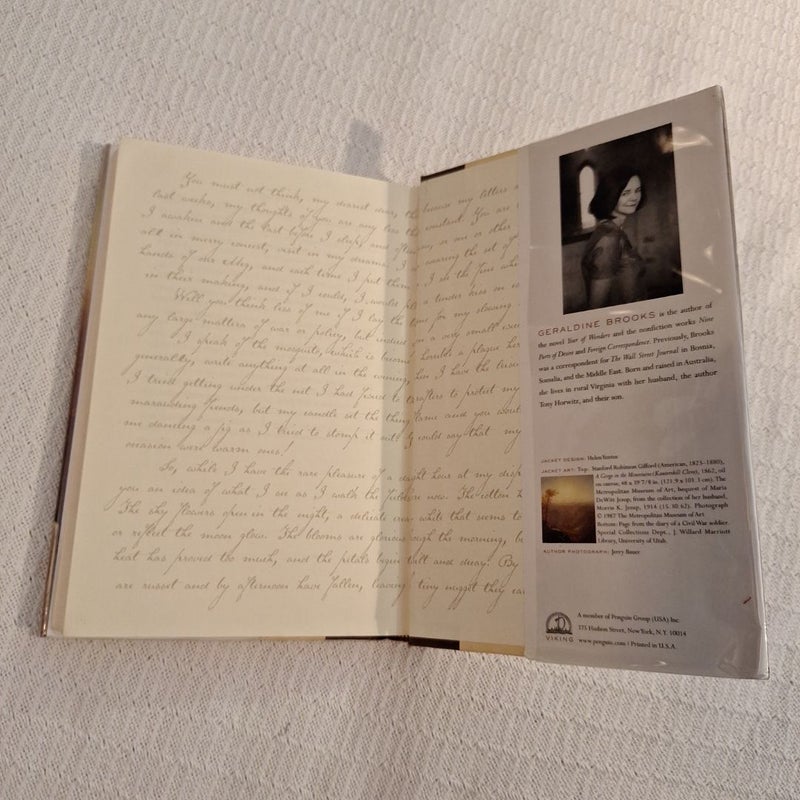 You must not think, my dearest dear, th because my letters
last weeks, my thoughts of you are any less the constant. You are
I awaken and the last before I sleep, and often , in one or other
all in merry concert, visit in my dreams. I wearing the set of
hands of our Meg, and each time I put them I see the fine
in their making, and if I could, I would pl a tender kiss on
Will you think less of me if I lay the time for my slowing
any large matters of war or policy, but indeed on a very small
I speak of the mosquito, which is become heralds a plague her
generally, write anything at all in the evening, hen I have the
I tried getting under the net I had fixed to rafters to protect my
marauding fiends, but my candle set the thing flame and you
me dancing a jig as I tried to stomp it out! could say that my
occasion were warm ones!
So, while I have the rare pleasure of a light hour at my
you an idea of what I see as I walk the fields now. The cotton
The shy flowers open in the night, a delicate white that seems to
or reflect the moon glow. The blooms are glorious ough the morning,
heat has proved too much, and the petals begin wilt and decay. By
are russet and by afternoon have fallen, leaving tiny nugget they
GERALDINE BROOKS is the author of
the novel Year of Wonders and the nonfiction works Nine
Parts of Desire and Foreign Correspondence. Previously, Brooks
was a correspondent for The Wall Street Journal in Bosnia,
Somalia, and the Middle East. Born and raised in Australia,
she lives in rural Virginia with her husband, the author
Tony Horwitz, and their son.
JACKET DESIGN: Helen Yentus
JACKET ART: Top: Sanford Robinson Gifford (American, 1823–1880),
A Gorge in the Mountains (Kauterskill Clove), 1862, oil
on canvas; 48 x 39 7/8 in. (121.9 x 101.3 cm). The
Metropolitan Museum of Art, bequest of Maria
DeWitt Jesup, from the collection of her husband,
Morris K. Jesup, 1914 (15.30.62). Photograph
© 1987 The Metropolitan Museum of Art
Bottom: Page from the diary of a Civil War soldier.
Special Collections Dept., J. Willard Marriott
Library, University of Utah.
AUTHOR PHOTOGRAPH: Jerry Bauer
VIKING
A member of Penguin Group (USA) Inc.
375 Hudson Street, New York, N.Y. 10014
www.penguin.com | Printed in U.S.A